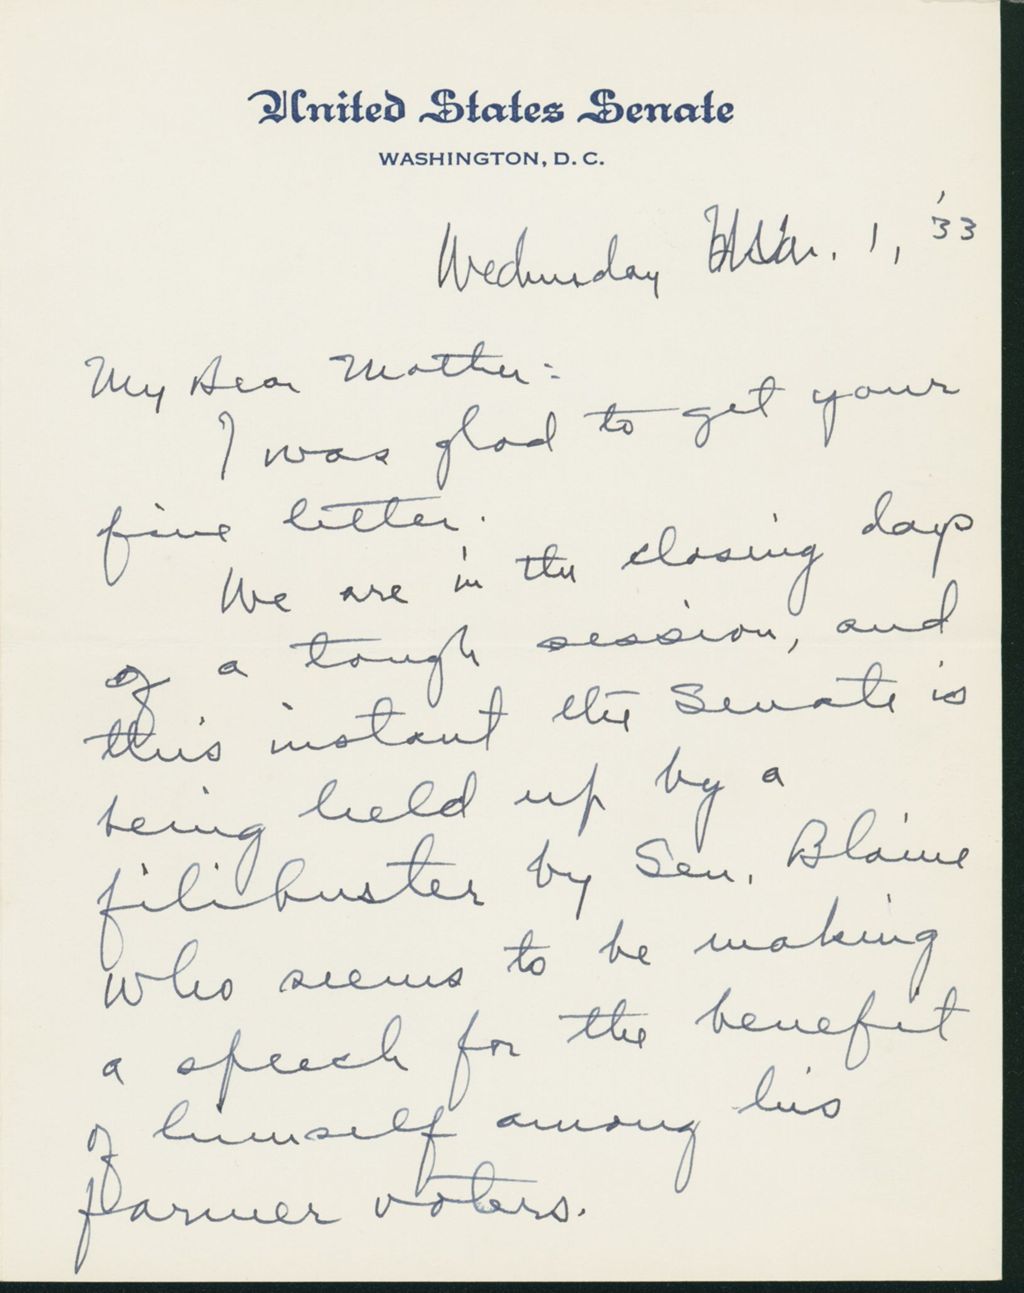 United States Senate
WASHINGTON, D. C.
Wednesday Mar. 1, '33
My Dear Mother:
I was glad to get your
fine letter.
We are in the closing days
of a tough session, and
this instant the Senate is
being held up by a
filibuster by Sen. Blaine
who seems to be making
a speech for the benefit
of himself among his
farmer voters.